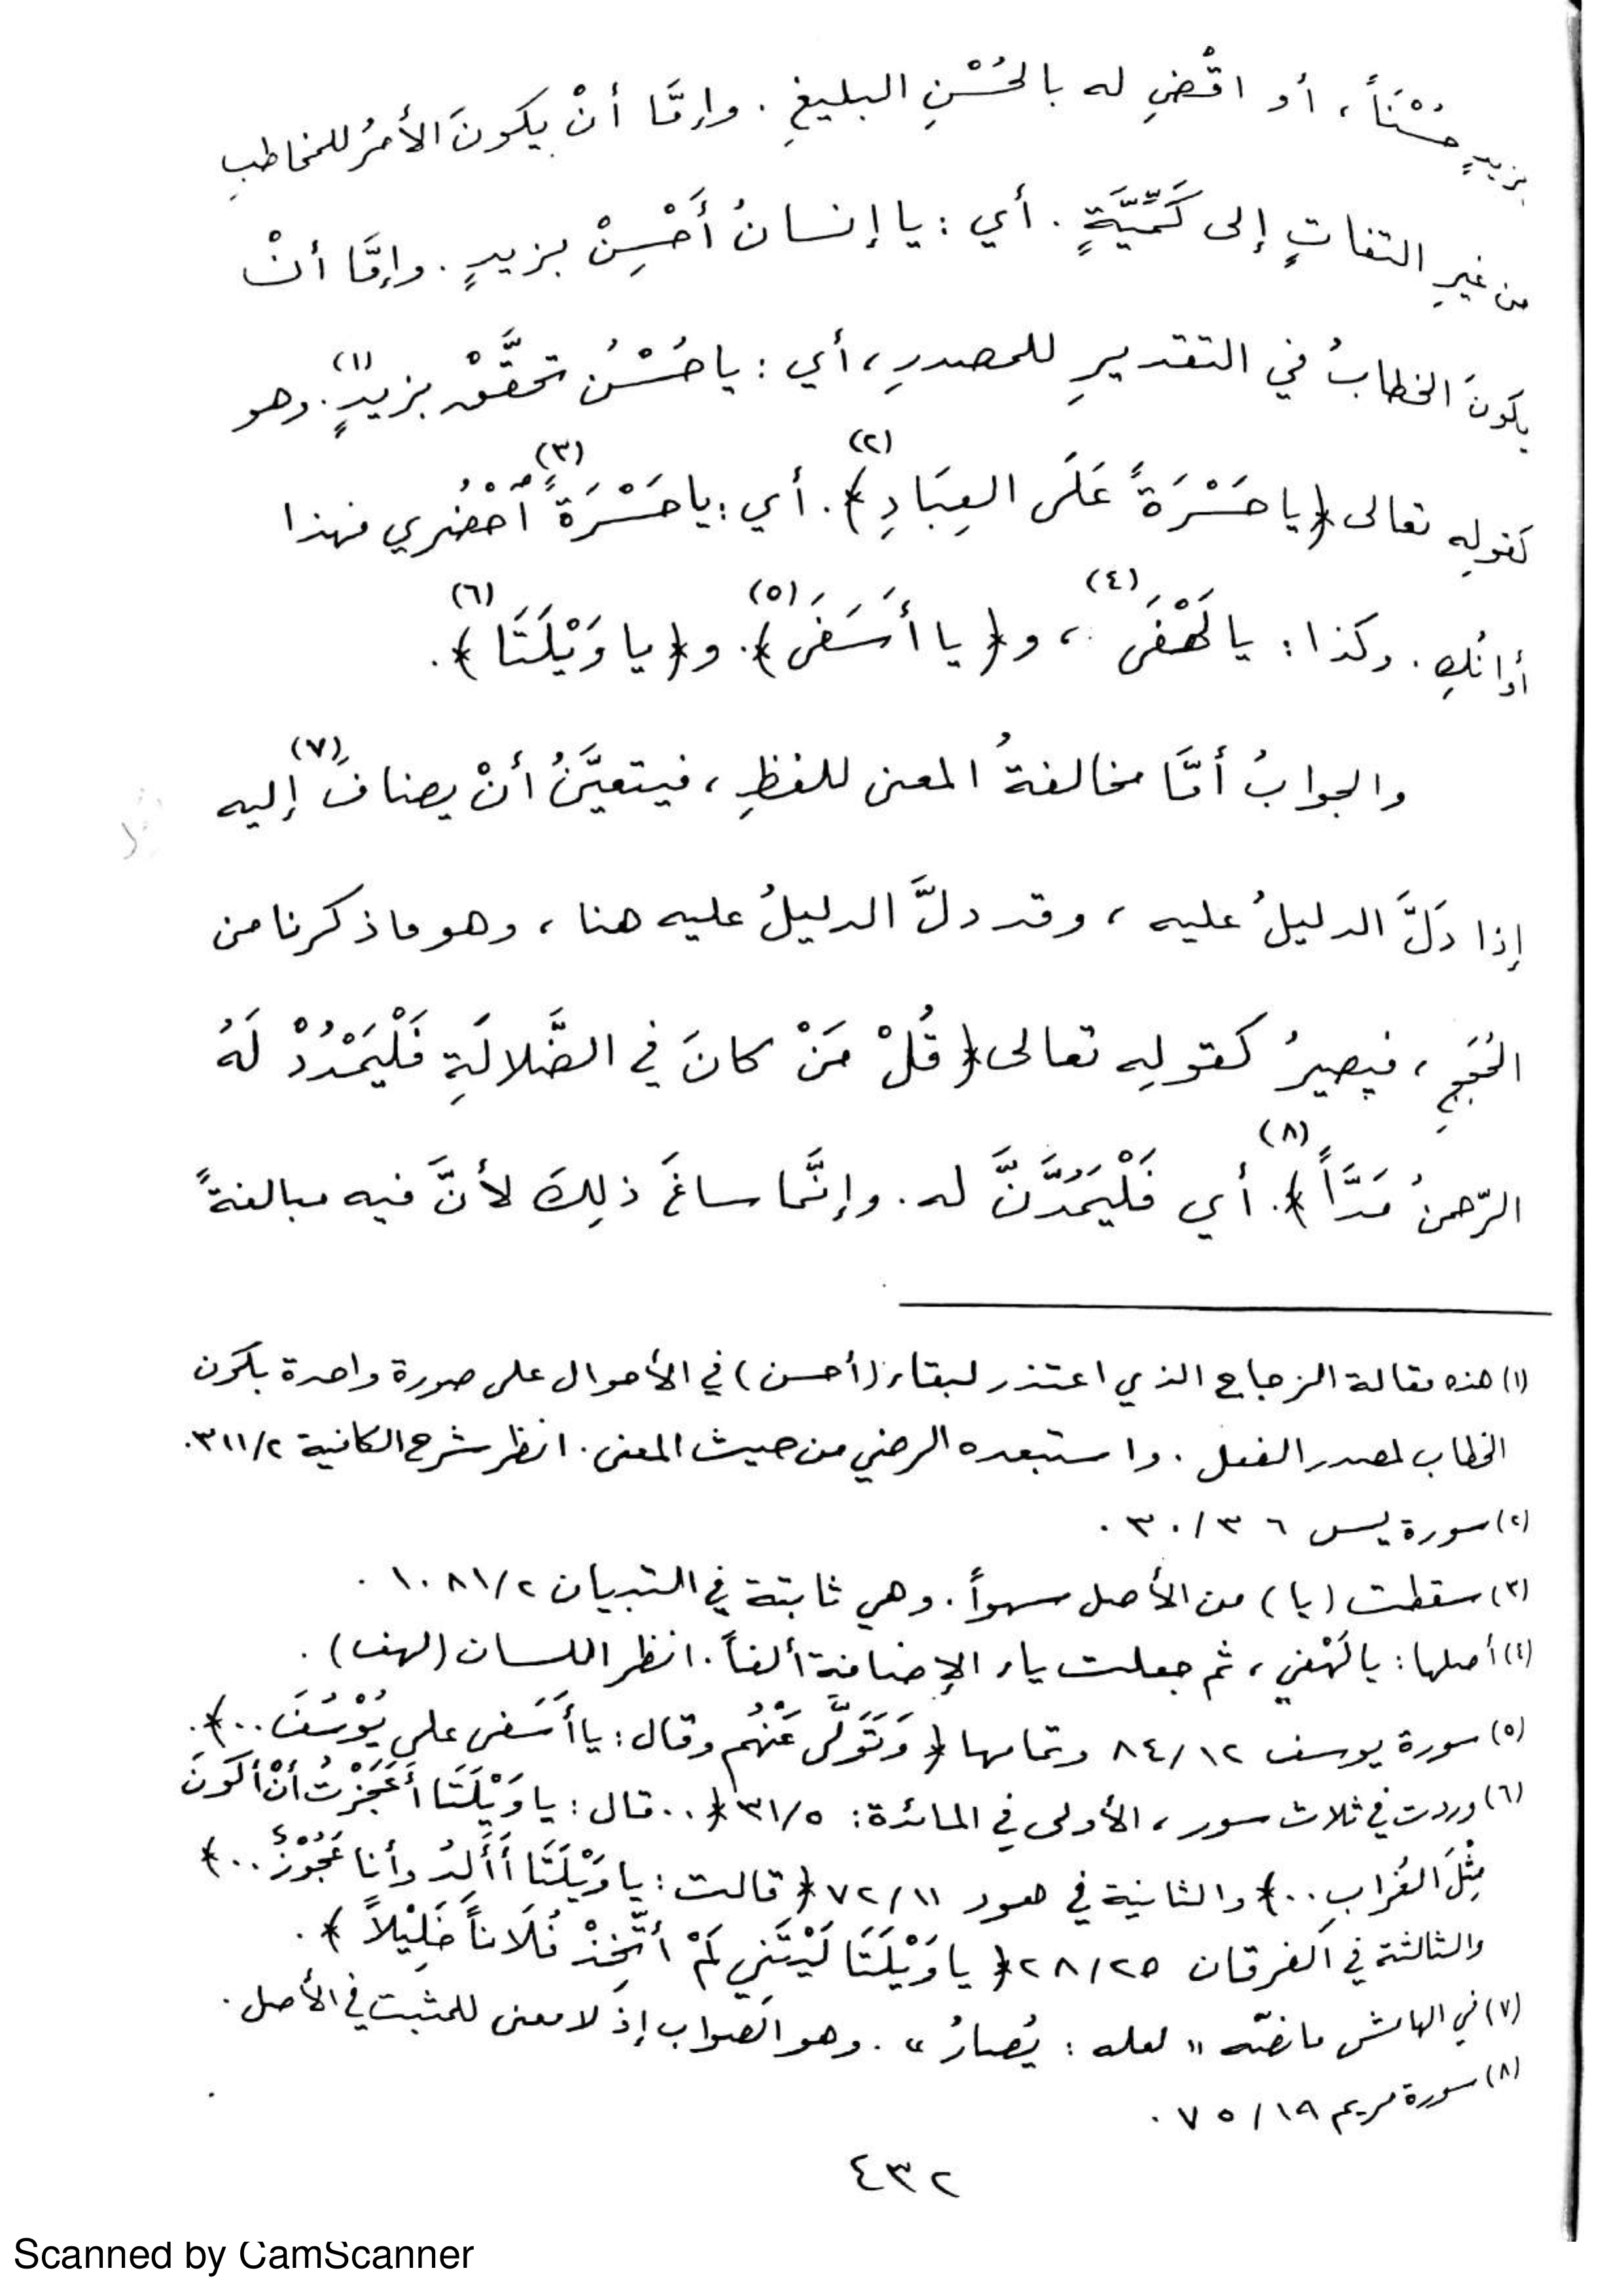 بزيدٍ حُسْنَاً، أو اقْضِ له بالحُسْنِ البليغِ. وإمَّا أنْ يكونَ الأمرُ للمخاطبِ
من غيرِ التفاتٍ إلى كَمِّيَّةٍ. أي: يا إنسانُ أَحْسِنْ بزيدٍ. وإمَّا أنْ
يكونَ الخطابُ في التقديرِ للمصدرِ، أي: يا حُسْنُ تحقَّقْ بزيدٍ(١). وهو
كقولِه تعالى ﴿يا حَسْرَةً عَلَى العِبَادِ﴾(٢). أي: يا حَسْرَةً(٣) اُحْضُري فهذا
أوانُكِ. وكذا: يا لَهْفَى(٤)، و﴿يا أَسَفَى﴾(٥). و﴿يا وَيْلَتَا﴾(٦).
والجوابُ أمَّا مخالفةُ المعنى للفظِ، فيتعيَّنُ أنْ يضافَ(٧) إليه
إذا دَلَّ الدليلُ عليه، وقد دلَّ الدليلُ عليه هنا، وهو ما ذكرنا من
الحُجَجِ، فيصيرُ كقولِه تعالى ﴿قُلْ مَنْ كانَ في الضَّلالَةِ فَلْيَمْدُدْ لَهُ
الرّحمنُ مَدَّاً﴾(٨). أي فَلْيَمُدَّنَّ له. وإنَّما ساغَ ذلِكَ لأنَّ فيه مبالغةً
(١) هذه مقالة الزجاج الذي اعتذر لبقاء (أحسن) في الأحوال على صورة واحدة بكون
الخطاب لمصدر الفعل. واستبعده الرضي من حيث المعنى. انظر شرح الكافية ٣١١/٢.
(٢) سورة يس ٣٠/٣٦.
(٣) سقطت (يا) من الأصل سهواً. وهي ثابتة في التبيان ١٠٨١/٢.
(٤) أصلها: يا لَهْفي، ثم جعلت ياء الإضافة ألفاً. انظر اللسان (لهف).
(٥) سورة يوسف ٨٤/١٢ وتمامها ﴿وَتَوَلَّى عَنْهُم وقال: يا أَسَفى على يُوْسُفَ..﴾.
(٦) وردت في ثلاث سور، الأولى في المائدة: ٣١/٥ ﴿..قال: يا وَيْلَتَا أَعَجَزْتُ أنْ أكونَ
مِثْلَ الغُرابِ..﴾ والثانية في هود ٧٢/١١ ﴿قالت: يا وَيْلَتَا أَأَلِدُ وأنا عَجُوْزٌ..﴾
والثالثة في الفرقان ٢٨/٢٥ ﴿يا وَيْلَتَا لَيْتَنِي لَمْ أتَّخِذْ فُلَاناً خَلِيْلاً﴾.
(٧) في الهامش ما نصّه « لعله: يُصارُ ». وهو الصواب إذ لا معنى للمثبت في الأصل.
(٨) سورة مريم ٧٥/١٩.
٤٣٢
Scanned by CamScanner